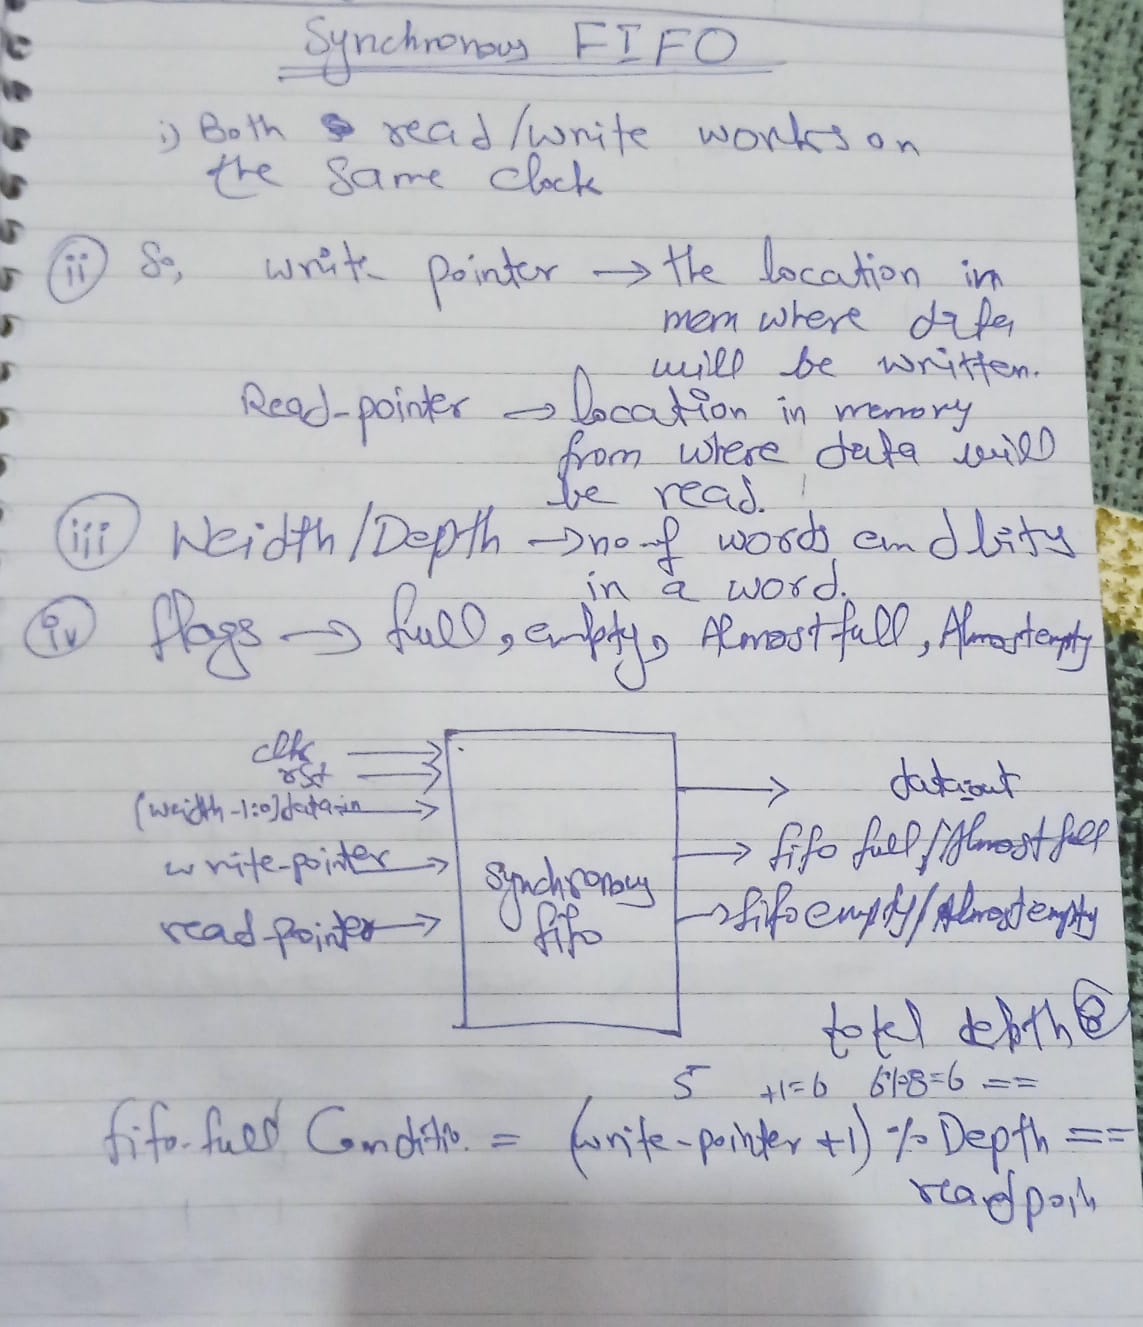 Synchronous FIFO
i) Both read/write works on
the same clock
ii) So, write pointer → the location in
mem where data
will be written.
Read-pointer → location in memory
from where data will
be read.
iii) Weidth/Depth → no of words and bits
in a word.
iv) flags → full, empty, Almost full, Almost empty
clk
rst
[weidth-1:0] data-in
write-pointer
read-pointer
Synchronous
fifo
data-out
fifo full/Almost full
fifo empty/Almost empty
total depth 8
5 +1=6 6%8=6 ==
fifo-full Conditio. = (write-pointer +1) % Depth ==
read poin